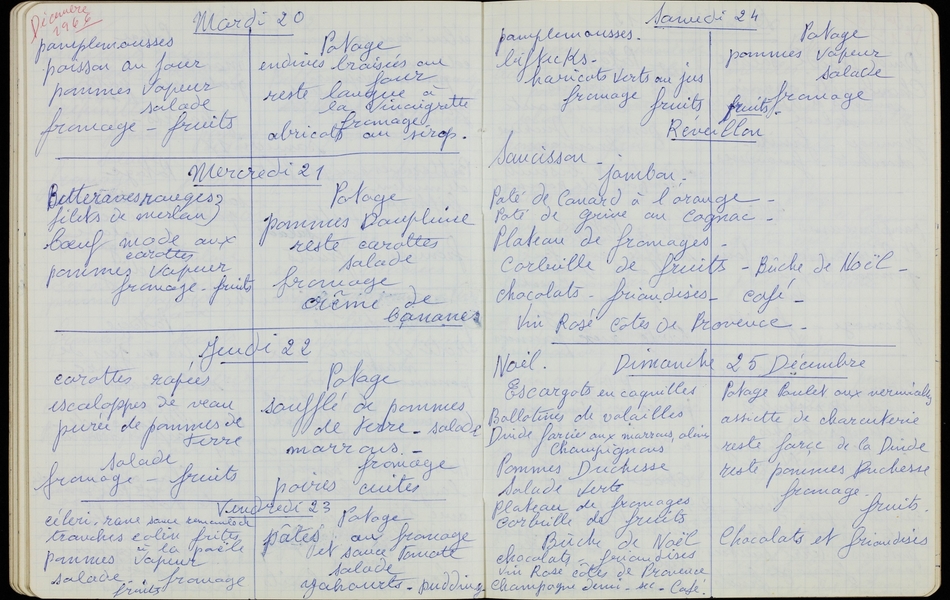 Décembre
1966
Mardi 20
pamplemousses
poisson au four
pommes vapeur
salade
fromage - fruits
Potage
endives braisées au
four
reste langue à
la vinaigrette
fromage
abricots au sirop.
Mercredi 21
Betteraves rouges
filets de merlan
bœuf mode aux
carottes
pommes vapeur
fromage - fruits
Potage
pommes Dauphine
reste carottes
salade
fromage
crème de
bananes
Jeudi 22
carottes rapées
escaloppes de veau
purée de pommes de
terre
salade
fromage - fruits
Potage
soufflé de pommes
de terre - salade
marrons. -
fromage
poires cuites
Vendredi 23
céleri-rave sauce remoulade
tranches colin frites
à la poêle
pommes vapeur
salade - fromage
fruits
Potage
pâtes au fromage
et sauce tomate
salade
yahourts - pudding
Samedi 24
pamplemousses.
biftecks -
haricots verts au jus
fromage fruits
Potage
pommes vapeur
salade
fromage
fruits
Réveillon
Saucisson -
jambon -
Paté de Canard à l'orange -
Paté de grive au Cognac -
Plateau de fromages -
Corbeille de fruits - Bûche de Noël -
chocolats - friandises - café -
Vin Rosé Côtes de Provence -
Noël. Dimanche 25 Décembre
Escargots en coquilles
Ballotines de volailles
Dinde farcie aux marrons,
Champignons
Pommes Duchesse
Salade Verte
Plateau de fromages
Corbeille de fruits
Bûche de Noël
chocolats - friandises
Vin Rosé côtes de Provence
Champagne demi-sec - Café.
Potage Poulet aux vermicelles
assiette de charcuterie
reste farce de la Dinde
reste pommes Duchesse
fromage.
fruits.
Chocolats et friandises